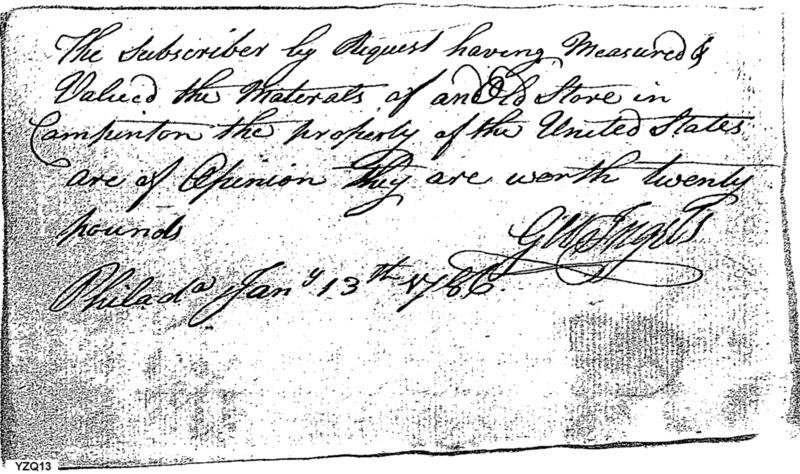 The Subscriber by Request having Measured &
Valued the Materals of an Old Store in
Campinton the property of the United States
are of Opinion they are worth twenty
pounds
Philada Jany 13th 1786
YZQ13